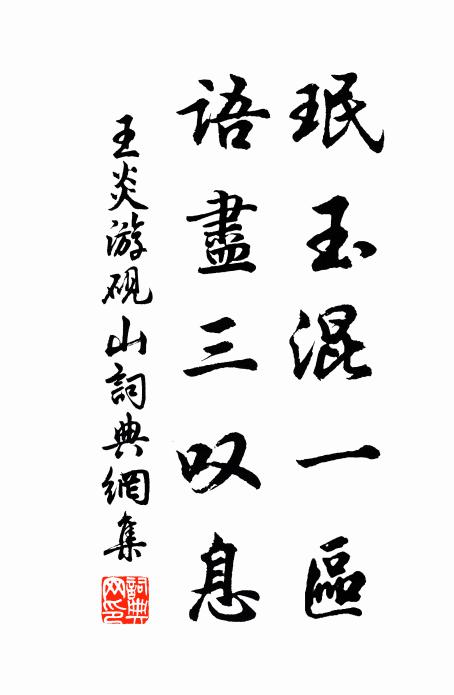 珉玉混一區
語盡三叹息
王炎游砚山詞典網集
詞典网印